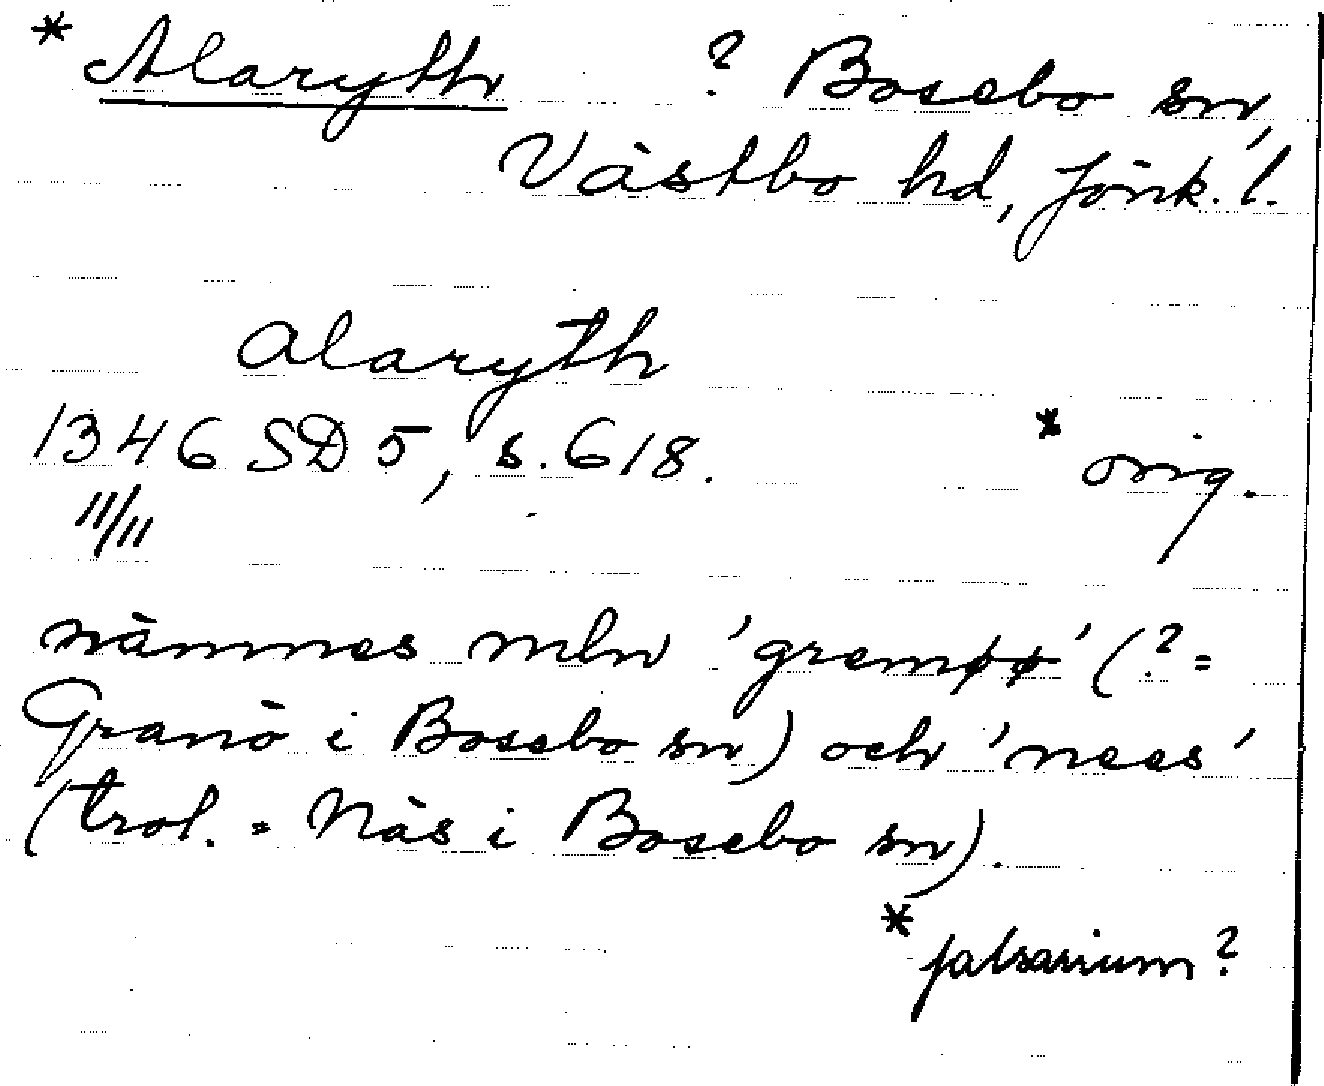 * Alaryth ? Bosebo sn,
Västbo hd, Jönk. l.
alaryth
1346 SD 5, s. 618. * orig.
11/11
nämnes mln 'gremøø' (? =
Granö i Bosebo sn) och 'nees'
(trol. = Näs i Bosebo sn).
* falsarium?